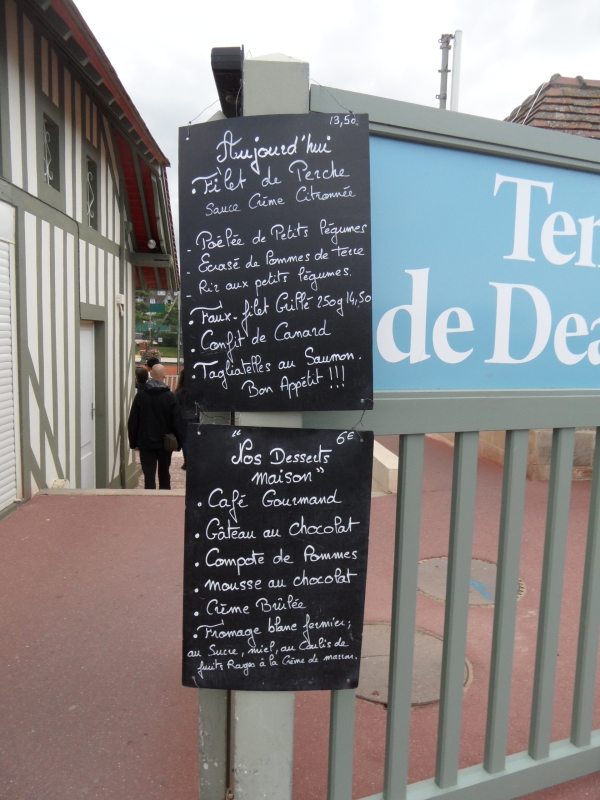 13,50
Aujourd'hui
• Filet de Perche
Sauce Crème Citronnée
- Poêlée de Petits légumes
- Ecrasé de Pommes de Terre
- Riz aux petits légumes.
• Faux-filet Grillé 250g 14,50
• Confit de Canard
• Tagliatelles au Saumon.
Bon Appétit !!!
6€
"Nos Desserts
maison"
• Café Gourmand
• Gâteau au chocolat
• Compote de Pommes
• mousse au chocolat
• Crème Brûlée
• Fromage blanc fermier;
au Sucre, miel, au Coulis de
fruits Rouges à la Crème de marron.
Ten
de Dea